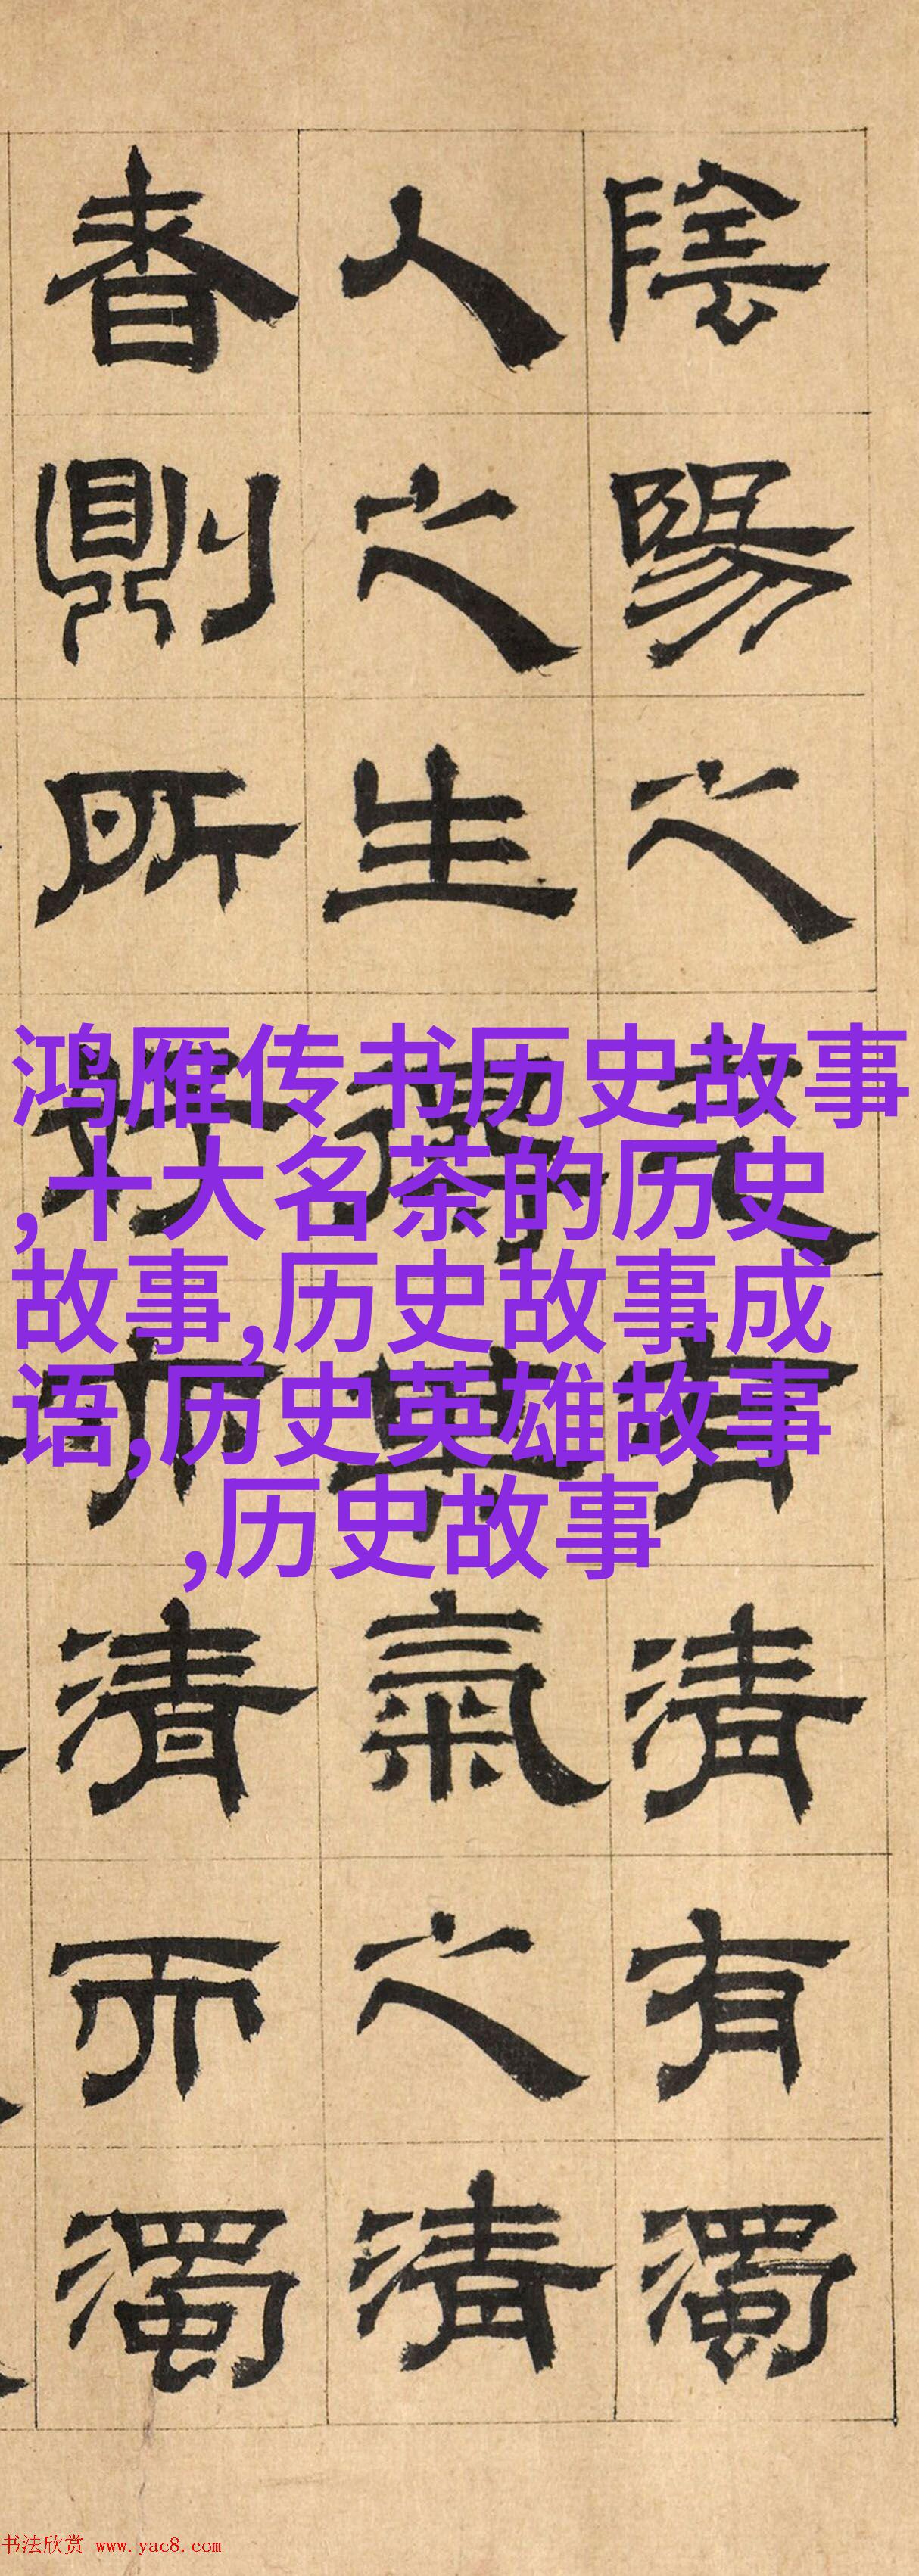 陰陽之有清有濁
人之生氣之清
者則所清而濁
鸿雁传书历史故事
,十大名茶的历史
故事,历史故事成
语,历史英雄故事
,历史故事
书法欣赏 www.yac8.com